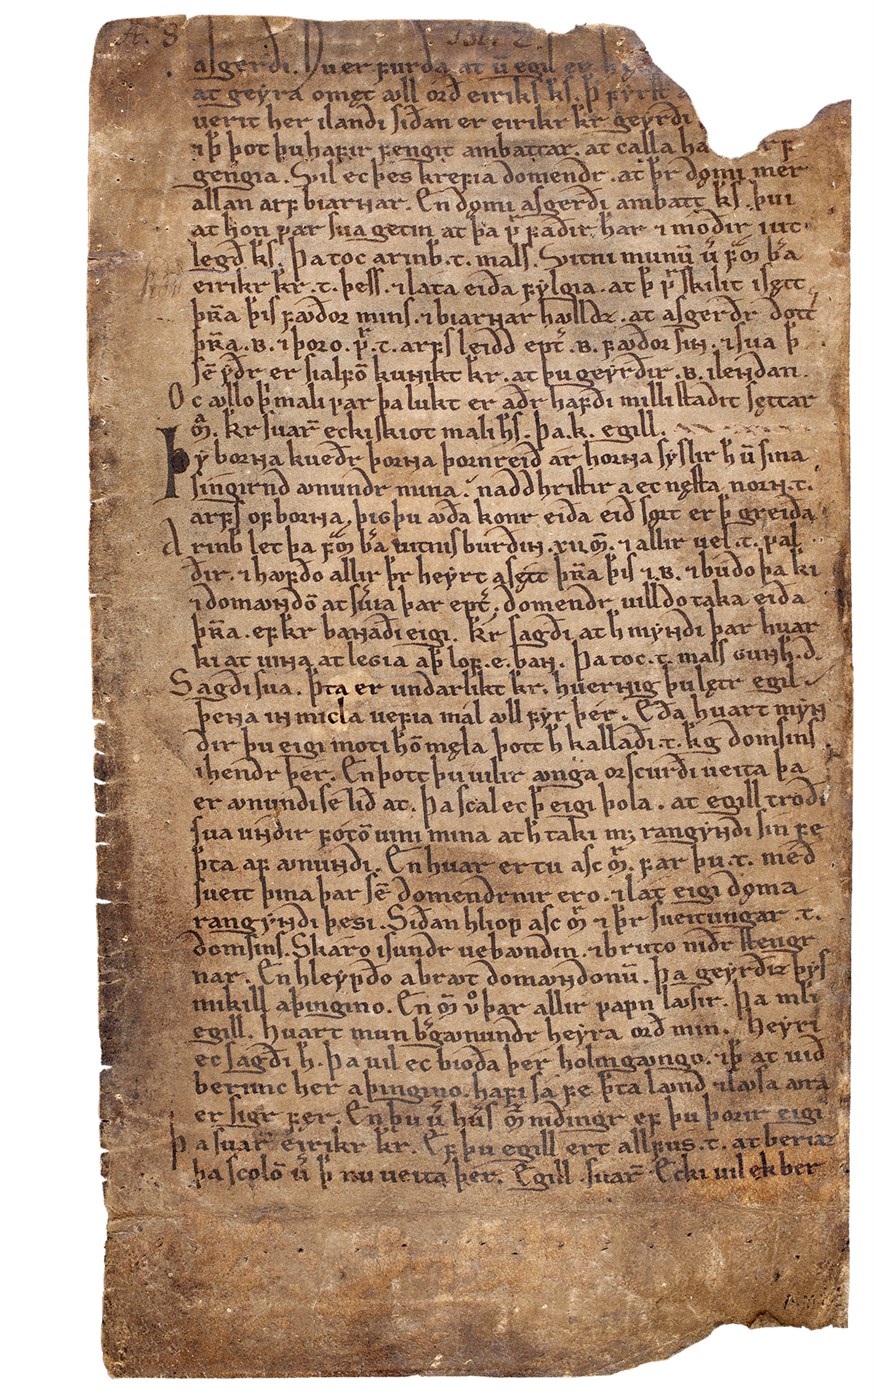 asgerdi. Þu er furda at u̅ egil er
at geyra omęt ꜹll ord eiriks ks. þ fyrst
uerit her ilandi sidan er eirikr kr geyrdi
ꝛ þ̅ þot þu hafir fengit ambattar. at calla
gengia. Vil ec þes krefia domendr. at þr dømi mer
allan arf biarnar. En dømi asgerdi ambatt ks. þui
at hon uar sua getin at þa ù fadir har ꝛ modir iut
legd ks. Þa toc arinb. t. mals. Vitni munu̅ u̅ fͫ b̅a
eirikr kr. t. þess. ꝛ lata eida fylgia. at þ ù skilit isętt
þr̅a þis fꜹdor mins. ꝛ biarnar hꜹlldz. at asgerdr dott
þr̅a. ʙ. ꝛ þoro. ù. t. arfs leidd epť. ʙ. fꜹdor siɴ. ꝛ sua þ
se̅ ydr er sialfo̅ kunikt kr. at þu geyrdir. ʙ. ilendan.
Oc ꜹllo þ̅ mali uar þa lukt er adr hafdi milli stadit sęttar
m̅. Kr suar̅ ecki skiot mali hs. Þa. k. egill.
Þy borna kuedr þorna þornreid ar horna syslir h u̅ sina
singirnd ꜹnundr mina. nadd hristir a ec nęsta norɴ. t.
arfs of borna, þigþu ꜹda konr eida eid sørt er þ greida
Arinb let þa fͫ b̅a uitnis burdiɴ. xii m̅. ꝛ allir uel. t. ual
dir. ꝛ hꜹfdo allir þr heyrt a sętt þr̅a þis ꝛ. ʙ. ꝛ budo þa ki
ꝛ domꜹndo̅ at sùia þar epť. domendr uilldo taka eida
þr̅a. ef kr banadi eigi. Kr sagdi at h myndi þar huar
ki at uina at legia aþ lof. e. ban. Þa toc. t. mals gunh. d.
Sagdi sua. Þta er undarlikt kr. huernig þu lętr egil
þena in micla uefia mal ꜹll fyr þer. Eda huart myn
dir þu eigi moti ho̅ męla þott h kalladi. t. kg domsins
ihendr þer. En þott þu uilir ꜹnga orscurdi ueita þa
er ꜹnundi se lid at. Þa scal ec þ eigi þola. at egill trodi
sua undir foto̅ uini mina at h taki mꝫ rangyndi sin fe
þta af ꜹnundi. En huar ertu asc m̅. far þu. t. med
sueit þina þar se̅ domendrnir ero. ꝛ lat eigi døma
rangyndi þesi. Sidan hliop asc m̅ ꝛ þr sueitungar. t.
domsins. Skáro isundr uebꜹndin. ꝛ bruto nidr stengr
nar. En hleypdo a brꜹt domꜹndonu̅. Þa geyrdiz þys
mikill aþingino. En m̅ u͛ þar allir uapn lꜹsir. Þa mli
egill. huart mun b̅gꜹnundr heyra ord min. Heyri
ec sagdi h. Þa uil ec bioda þer holmgꜹngo. ꝛ þ at uid
berimc her aþingino. hafi sa fe þta lꜹnd ꝛ lꜹsa ꜹra
er sigr fęr. En þu u͛ hùs m̅ nidingr ef þu þorir eigi
Þa suar̅ eirikr kr. Ef þu egill ert allfus. t. at beriaz
þa scolo̅ u͛ þ nu ueita þer. Egill suar̅ Ecki uil ek ber